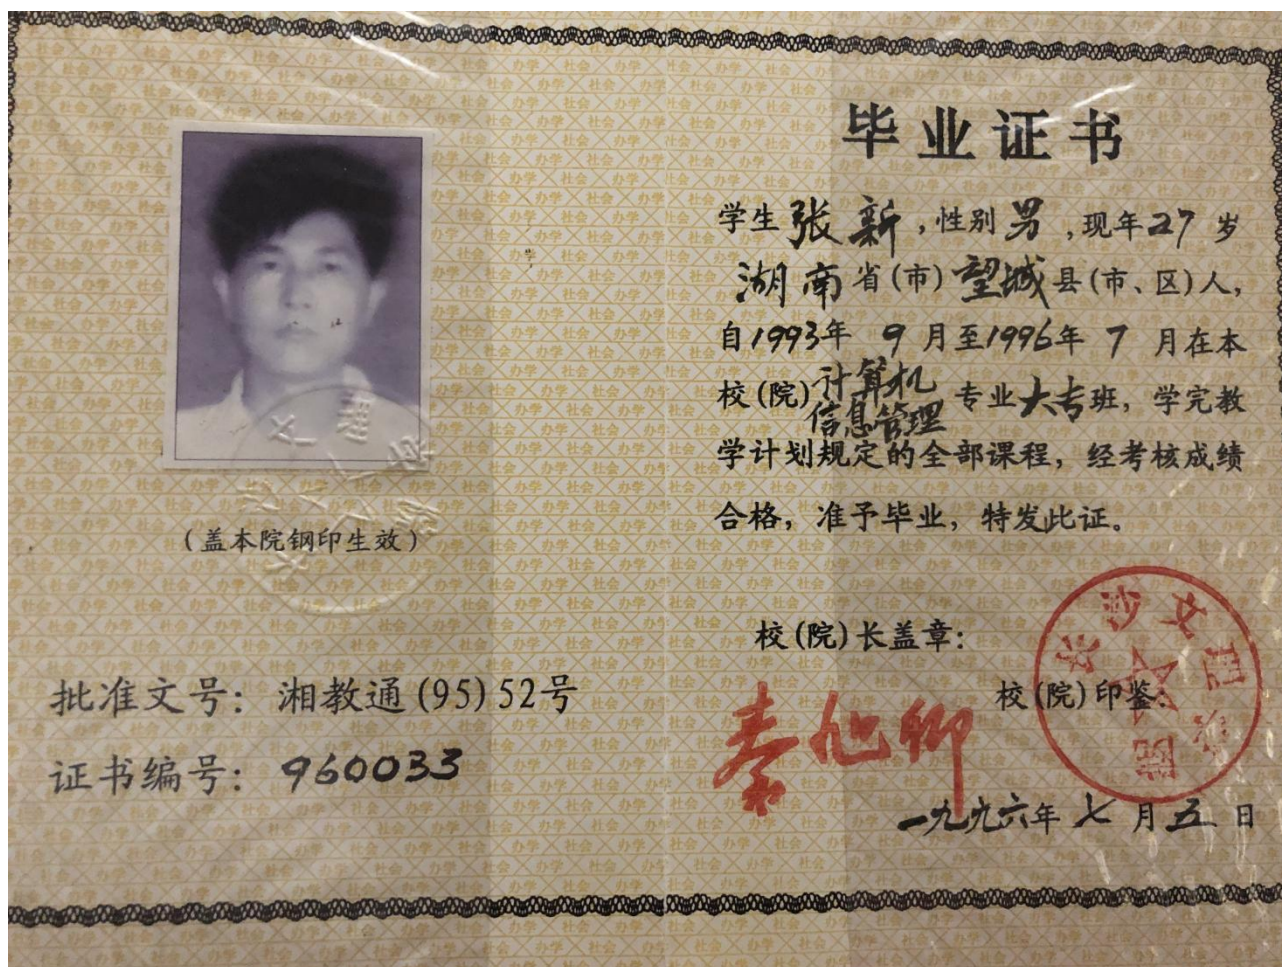 毕业证书
学生张新,性别男,现年27岁
湖南省(市)望城县(市、区)人,
自1993年9月至1996年7月在本
校(院)计算机信息管理专业大专班,学完教
学计划规定的全部课程,经考核成绩
合格,准予毕业,特发此证。
(盖本院钢印生效)
校(院)长盖章:
秦旭卿
校(院)印鉴:
长沙文理学院
批准文号:湘教通(95)52号
证书编号:960033
一九九六年七月五日